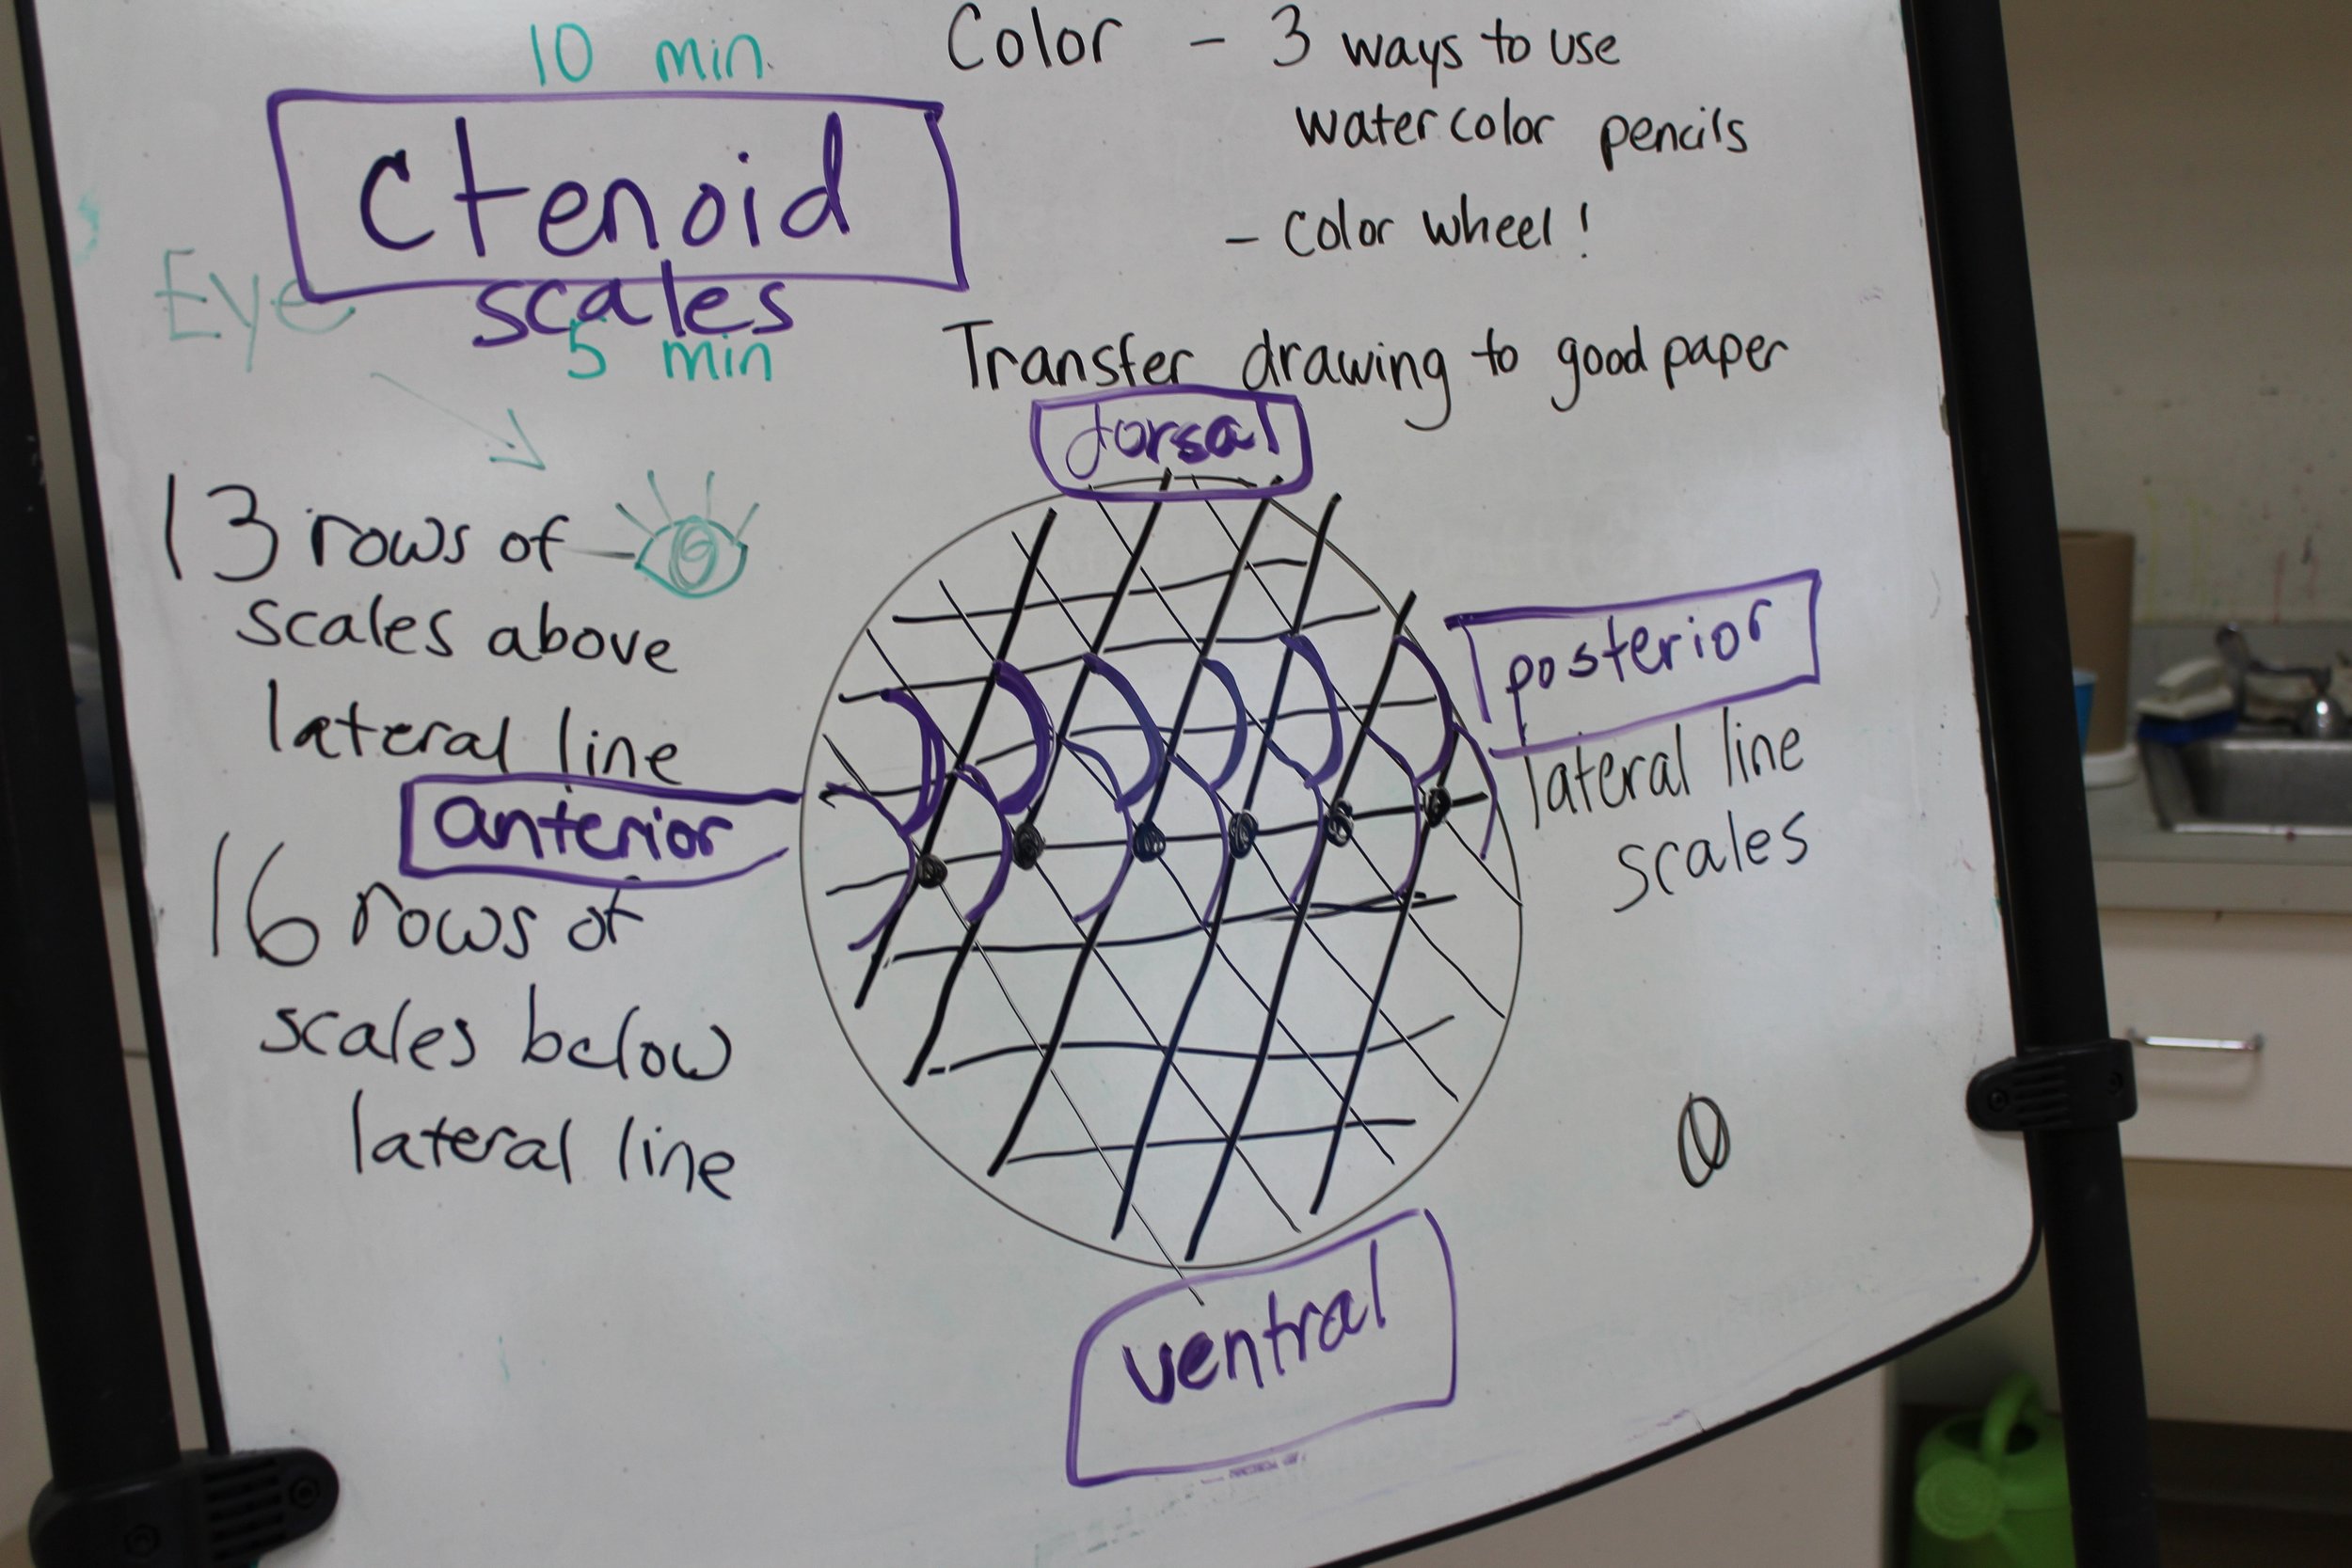 10 min.
Ctenoid
scales
Eye
5 min
Color - 3 ways to use
watercolor pencils
- color wheel!
Transfer drawing to good paper
dorsal
13 rows of
scales above
lateral line
anterior
16 rows of
scales below
lateral line
posterior
lateral line
scales
ventral